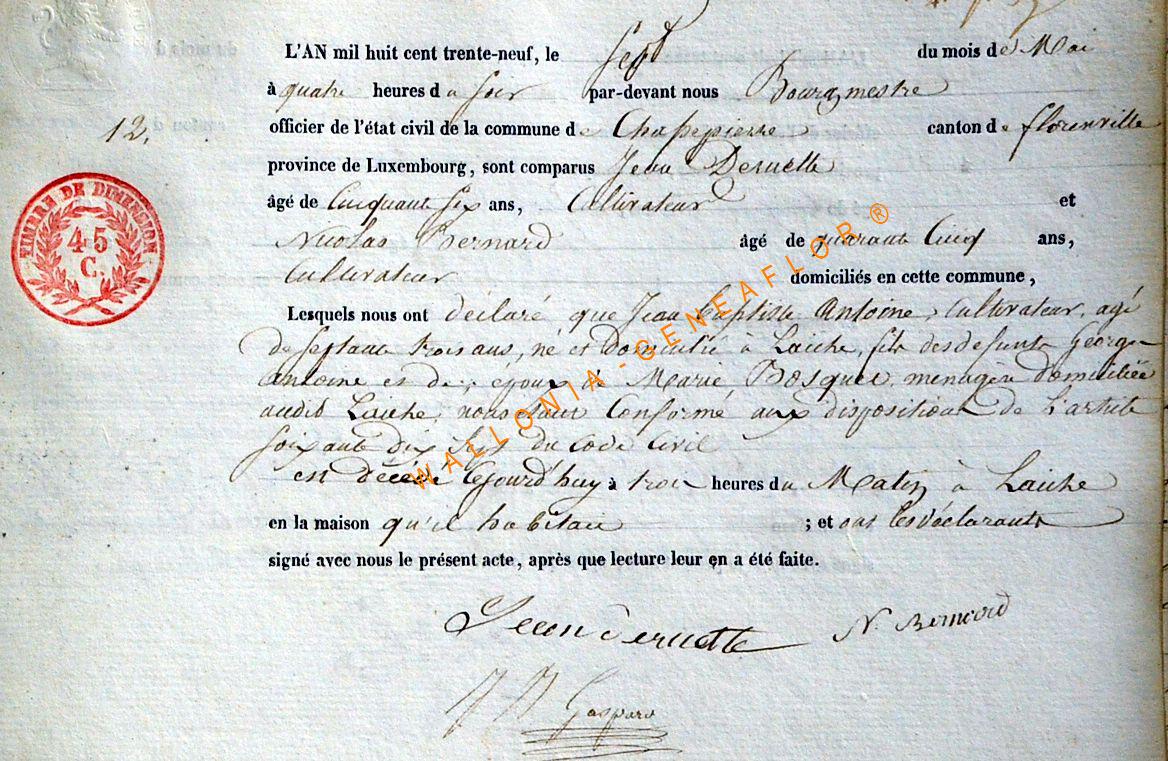 12.
TIMBRE DE DIMENSION
45
C.
L'AN mil huit cent trente-neuf, le Sept du mois de Mai
à quatre heures du soir par-devant nous Bourgmestre
officier de l'état civil de la commune de Chassepierre canton de florenville
province de Luxembourg, sont comparus Jean Deruette
âgé de Cinquant Six ans, Cultivateur et
Nicolas Bernard âgé de quarante Cinq ans,
Cultivateur domiciliés en cette commune,
Lesquels nous ont déclaré que Jean Baptiste Antoine, Cultivateur, agé
de Septante trois ans, né et domicilié à Laiche, fils des defunts George
Antoine et de, époux de Marie Bosquet, menagère domiciliée
audit Laiche, nous etant Conformé aux dispositions de l'article
Soixante dix Sept du Code Civil
est décédé Cejourd'huy à trois heures du Matin à Laiche
en la maison qu'il habitait ; et ont les déclarants
signé avec nous le présent acte, après que lecture leur en a été faite.
Jean deruette N. Bernard
J J Gaspard
WALLONIA-GENEAFLOR®